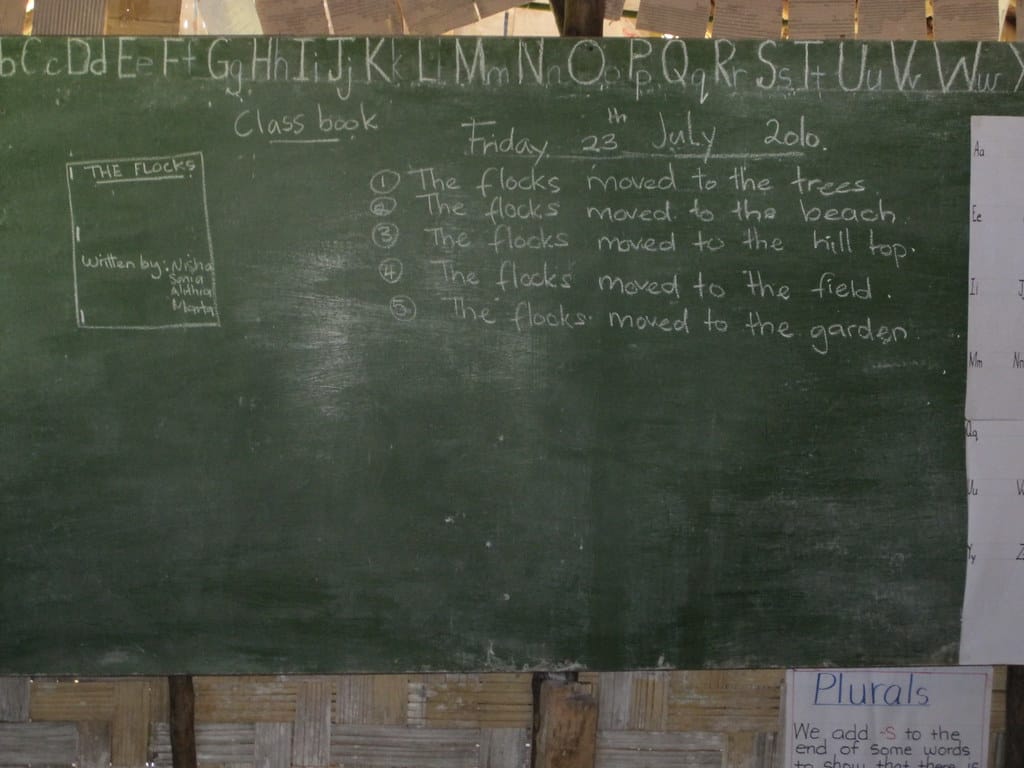 b C c D d E e F f G g H h I i J j K k L l M m N n O o P p Q q R r S s T t U u V v W w Y
Class book
Friday 23th July 2010.
THE FLOCKS
Written by: Nisha
Maria
① The flocks moved to the trees
② The flocks moved to the beach.
③ The flocks moved to the hill top.
④ The flocks moved to the field.
⑤ The flocks. moved to the garden
Aa
Ee
Ii J
Mm Nn
Qq
Uu V
Yy Z
Plurals
We add -s to the
end of some words
to show that there is